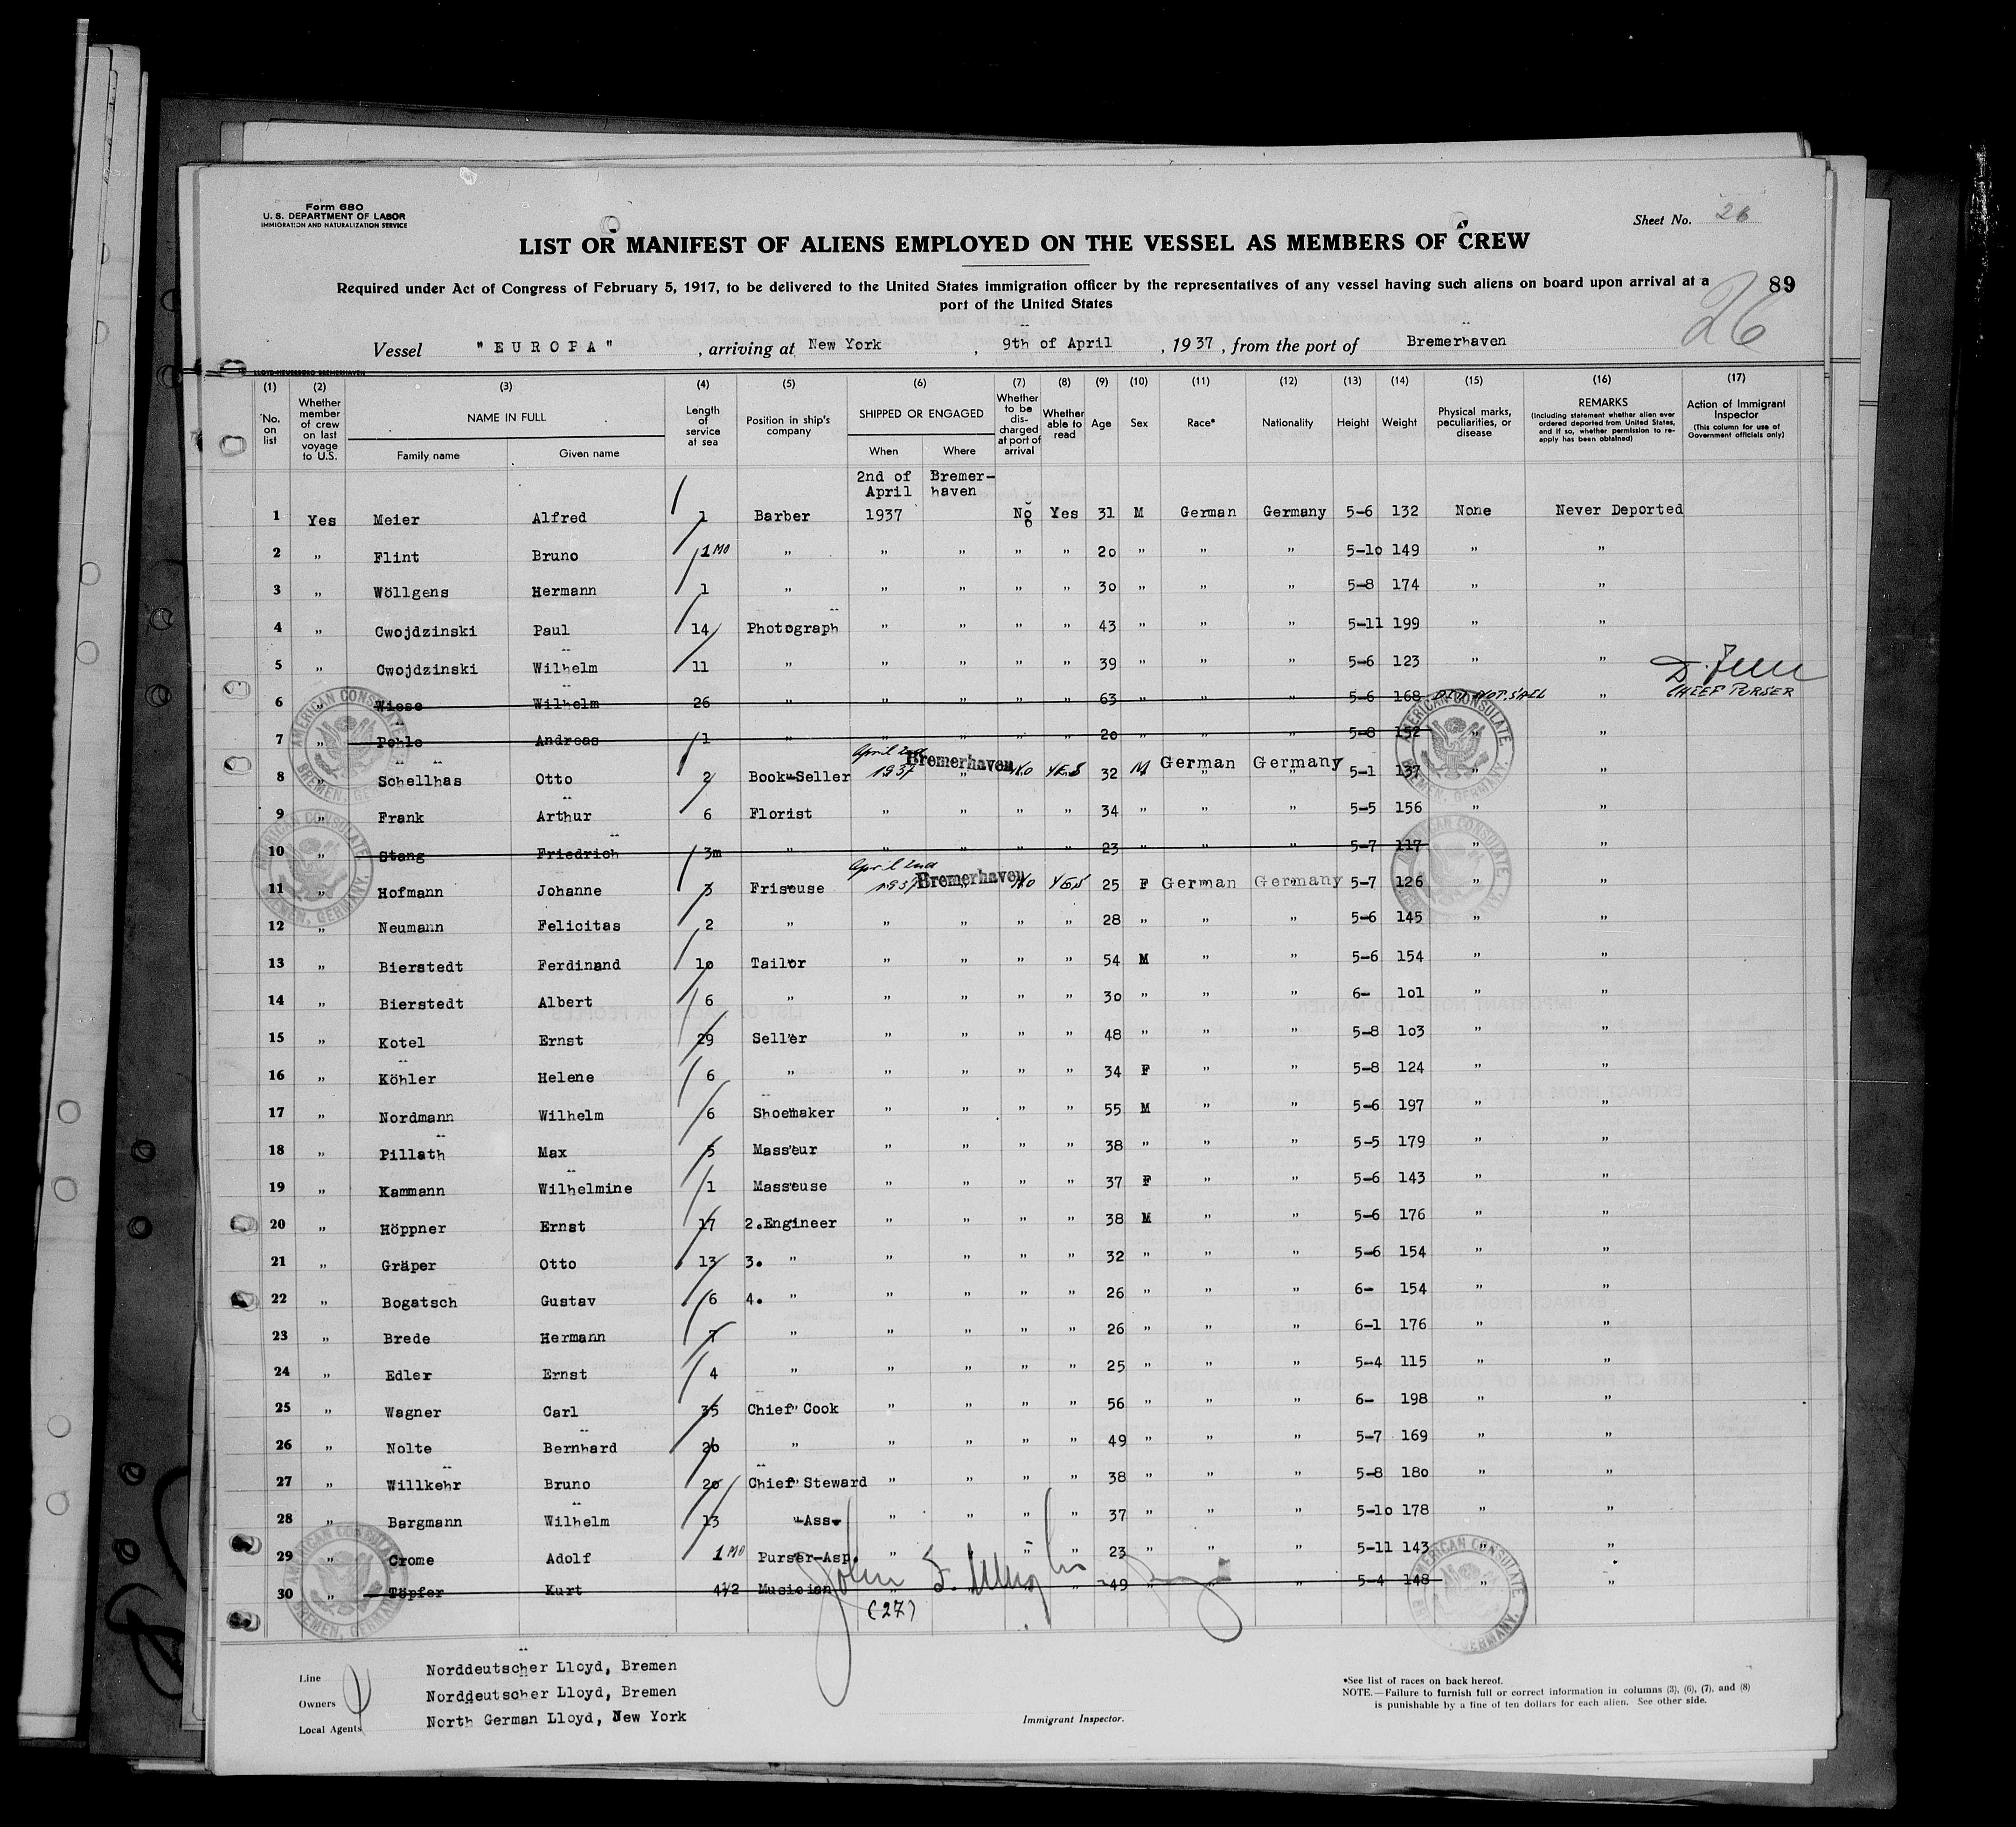 Form 680
U. S. DEPARTMENT OF LABOR
IMMIGRATION AND NATURALIZATION SERVICE
Sheet No. 26
LIST OR MANIFEST OF ALIENS EMPLOYED ON THE VESSEL AS MEMBERS OF CREW
Required under Act of Congress of February 5, 1917, to be delivered to the United States immigration officer by the representatives of any vessel having such aliens on board upon arrival at a
port of the United States
89
26
Vessel "EUROPA", arriving at New York, 9th of April, 1937, from the port of Bremerhaven
(1) (2) (3) (4) (5) (6) (7) (8) (9) (10) (11) (12) (13) (14) (15) (16) (17)
No. on list
Whether member of crew on last voyage to U.S.
NAME IN FULL
Family name Given name
Length of service at sea
Position in ship's company
SHIPPED OR ENGAGED
When Where
Whether to be discharged at port of arrival
Whether able to read
Age
Sex
Race*
Nationality
Height
Weight
Physical marks, peculiarities, or disease
REMARKS
(Including statement whether alien ever ordered deported from United States, and if so, whether permission to reapply has been obtained)
Action of Immigrant Inspector
(This column for use of Government officials only)
2nd of Bremer-
April haven
1 Yes Meier Alfred 1 Barber 1937 No Yes 31 M German Germany 5-6 132 None Never Deported
2 " Flint Bruno 1 MO " " " " " 20 " " " 5-10 149 " "
3 " Wöllgens Hermann 1 " " " " " 30 " " " 5-8 174 " "
4 " Cwojdzinski Paul 14 Photograph " " " " 43 " " " 5-11 199 " "
5 " Cwojdzinski Wilhelm 11 " " " " " 39 " " " 5-6 123 " "
CHIEF PURSER
6 " Wiese Wilhelm 26 " " " " " 63 " " " 5-6 168 DID NOT SAIL "
7 " Pohle Andreas 1 " " " " " 20 " " " 5-8 152 " "
8 " Schellhas Otto 2 Book-Seller April 2nd 1937 Bremerhaven No YES 32 M German Germany 5-1 137 " "
9 " Frank Arthur 6 Florist " " " " 34 " " " 5-5 156 " "
10 " Stang Friedrich 3m " " " " " 23 " " " 5-7 117 " "
11 " Hofmann Johanne 3 Friseuse April 2nd 1937 Bremerhaven No YES 25 F German Germany 5-7 126 " "
12 " Neumann Felicitas 2 " " " " " 28 " " " 5-6 145 " "
13 " Bierstedt Ferdinand 10 Tailor " " " " 54 M " " 5-6 154 " "
14 " Bierstedt Albert 6 " " " " " 30 " " " 6- 101 " "
15 " Kotel Ernst 29 Seller " " " " 48 " " " 5-8 103 " "
16 " Köhler Helene 6 " " " " " 34 F " " 5-8 124 " "
17 " Nordmann Wilhelm 6 Shoemaker " " " " 55 M " " 5-6 197 " "
18 " Pillath Max 5 Masseur " " " " 38 " " " 5-5 179 " "
19 " Kammann Wilhelmine 1 Masseuse " " " " 37 F " " 5-6 143 " "
20 " Höppner Ernst 17 2.Engineer " " " " 38 M " " 5-6 176 " "
21 " Gräper Otto 13 3. " " " " " 32 " " " 5-6 154 " "
22 " Bogatsch Gustav 6 4. " " " " " 26 " " " 6- 154 " "
23 " Brede Hermann 7 " " " " " 26 " " " 6-1 176 " "
24 " Edler Ernst 4 " " " " " 25 " " " 5-4 115 " "
25 " Wagner Carl 35 Chief Cook " " " " 56 " " " 6- 198 " "
26 " Nolte Bernhard 20 " " " " " 49 " " " 5-7 169 " "
27 " Willkehr Bruno 20 Chief Steward " " " " 38 " " " 5-8 180 " "
28 " Bargmann Wilhelm 13 "-Ass. " " " " 37 " " " 5-10 178 " "
29 " Crome Adolf 1 MO Purser-Asp. " " " " 23 " " " 5-11 143 " "
30 " Töpfer Kurt 4 1/2 Musician " " " " 49 " " " 5-4 148 " "
(27)
AMERICAN CONSULATE BREMEN, GERMANY.
AMERICAN CONSULATE BREMEN, GERMANY.
AMERICAN CONSULATE BREMEN, GERMANY.
AMERICAN CONSULATE
AMERICAN CONSULATE BREMEN, GERMANY.
AMERICAN CONSULATE GERMANY.
Line Norddeutscher Lloyd, Bremen
Owners Norddeutscher Lloyd, Bremen
Local Agents North German Lloyd, New York
Immigrant Inspector.
*See list of races on back hereof.
NOTE.—Failure to furnish full or correct information in columns (3), (6), (7), and (8)
is punishable by a fine of ten dollars for each alien. See other side.